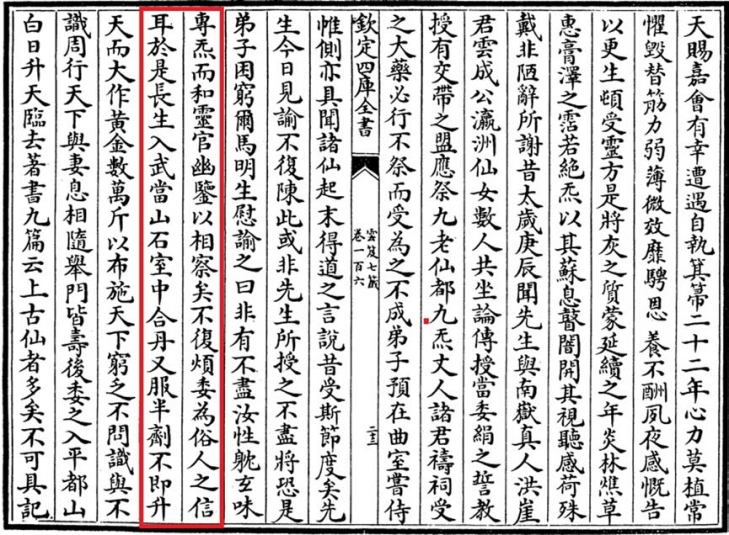 天賜嘉會有幸遭遇自執箕箒二十二年心力莫植常
懼毀替筋力弱薄微效靡騁恩養不酬夙夜感慨告
以更生頓受靈方是將灰之質蒙延續之年炎林燋草
惠膏澤之霑若絶炁以其蘇息瞽闇開其視聽感荷殊
戴非陋辭所謝昔太歲庚辰聞先生與南嶽真人洪崖
君雲成公瀛洲仙女數人共坐論傳授當委絹之誓教
授有交帶之盟應祭九老仙都九炁丈人諸君禱祠受
之大藥必行不祭而受為之不成弟子預在曲室嘗侍
欽定四庫全書
雲笈七籤
卷一百六
二三
惟側亦具聞諸仙起末得道之言說昔受斯節度矣先
生今日見諭不復陳此或非先生所授之不盡將恐是
弟子困窮爾馬明生慰諭之曰非有不盡汝性躭玄味
專炁而和靈官幽鑒以相察矣不復煩委為俗人之信
耳於是長生入武當山石室中合丹又服半劑不即升
天而大作黃金數萬斤以布施天下窮乏不問識與不
識周行天下與妻息相隨舉門皆壽後委之入平都山
白日升天臨去著書九篇云上古仙者多矣不可具記